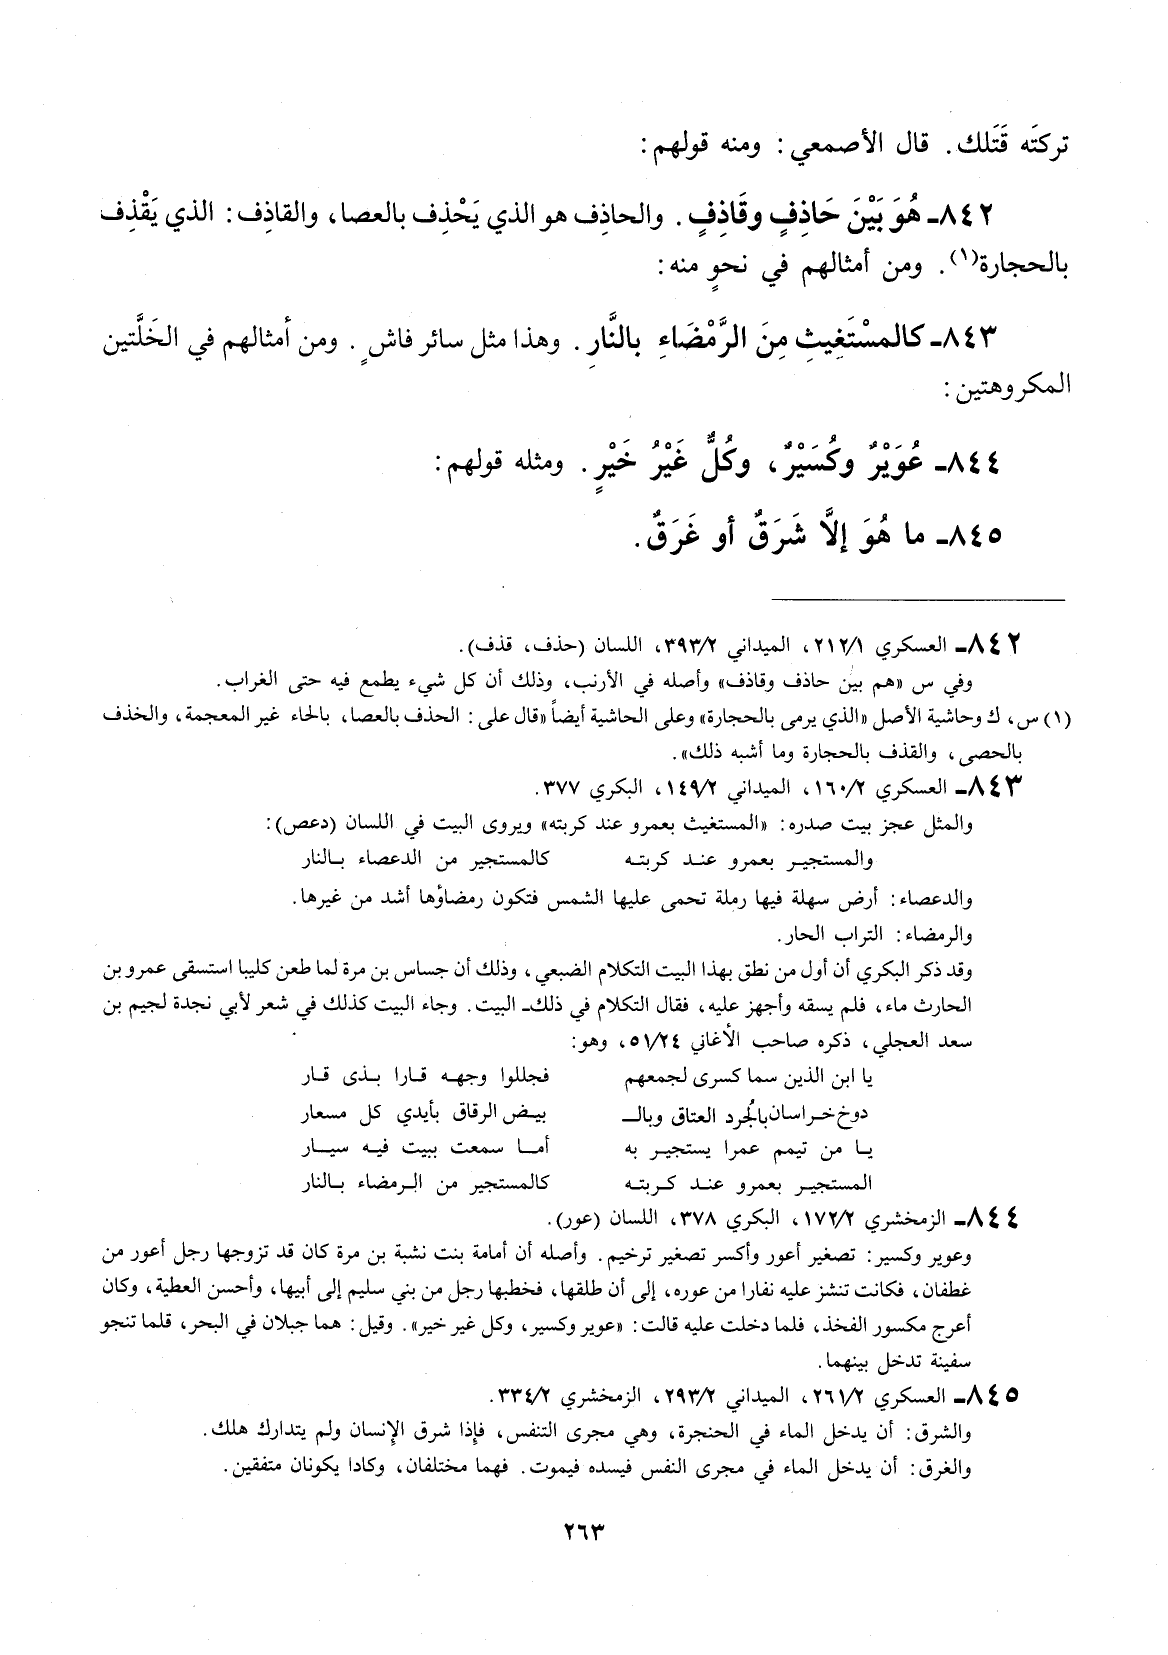 تركتَه قَتَلك. قال الأصمعي: ومنه قولهم:
٨٤٢ـ هُوَ بَيْنَ حَاذِفٍ وقَاذِفٍ. والحاذِف هو الذي يَحْذِف بالعصا، والقاذِف: الذي يَقْذِف
بالحجارة(١). ومن أمثالهم في نحوٍ منه:
٨٤٣ـ كالمسْتَغِيثِ مِنَ الرَّمْضَاءِ بالنَّارِ. وهذا مثل سائر فاشٍ. ومن أمثالهم في الخَلَّتين
المكروهتين:
٨٤٤ـ عُوَيْرٌ وكُسَيْرٌ، وكُلٌّ غَيْرُ خَيْرٍ. ومثله قولهم:
٨٤٥ـ ما هُوَ إلَّا شَرَقٌ أو غَرَقٌ.
٨٤٢ـ العسكري ٢١٢/١، الميداني ٣٩٣/٢، اللسان (حذف، قذف).
وفي س «هم بين حاذف وقاذف» وأصله في الأرنب، وذلك أن كل شيء يطمع فيه حتى الغراب.
(١) س، ك وحاشية الأصل «الذي يرمى بالحجارة» وعلى الحاشية أيضاً «قال على: الحذف بالعصا، بالحاء غير المعجمة، والخذف
بالحصى، والقذف بالحجارة وما أشبه ذلك».
٨٤٣ـ العسكري ١٦٠/٢، الميداني ١٤٩/٢، البكري ٣٧٧.
والمثل عجز بيت صدره: «المستغيث بعمرو عند كربته» ويروى البيت في اللسان (دعص):
والمستجيـر بعمرو عنـد كربتـه كالمستجير من الدعصاء بـالنار
والدعصاء: أرض سهلة فيها رملة تحمى عليها الشمس فتكون رمضاؤها أشد من غيرها.
والرمضاء: التراب الحار.
وقد ذكر البكري أن أول من نطق بهذا البيت التكلام الضبعي، وذلك أن جساس بن مرة لما طعن كليبا استسقى عمرو بن
الحارث ماء، فلم يسقه وأجهز عليه، فقال التكلام في ذلك ـ البيت. وجاء البيت كذلك في شعر لأبي نجدة لجيم بن
سعد العجلي، ذكره صاحب الأغاني ٥١/٢٤، وهو:
يا ابن الذين سما كسرى لجمعهم فجللوا وجهه قـارا بـذى قـار
دوخ خراسان بالجُرد العتاق وبالـ بيـض الرقاق بأيدي كل مسعار
يـا من تيمم عمرا يستجيـر به أمـا سمعت ببيت فيـه سيـار
المستجيـر بعمرو عنـد كـربتـه كالمستجير من الـرمضاء بـالنار
٨٤٤ـ الزمخشري ١٧٢/٢، البكري ٣٧٨، اللسان (عور).
وعوير وكسير: تصغير أعور وأكسر تصغير ترخيم. وأصله أن أمامة بنت نشبة بن مرة كان قد تزوجها رجل أعور من
غطفان، فكانت تنشز عليه نفارا من عوره، إلى أن طلقها، فخطبها رجل من بني سليم إلى أبيها، وأحسن العطية، وكان
أعرج مكسور الفخذ، فلما دخلت عليه قالت: «عوير وكسير، وكل غير خير». وقيل: هما جبلان في البحر، قلما تنجو
سفينة تدخل بينهما.
٨٤٥ـ العسكري ٢٦١/٢، الميداني ٢٩٣/٢، الزمخشري ٣٣٤/٢.
والشرق: أن يدخل الماء في الحنجرة، وهي مجرى التنفس، فإذا شرق الإنسان ولم يتدارك هلك.
والغرق: أن يدخل الماء في مجرى النفس فيسده فيموت. فهما مختلفان، وكادا يكونان متفقين.
٢٦٣